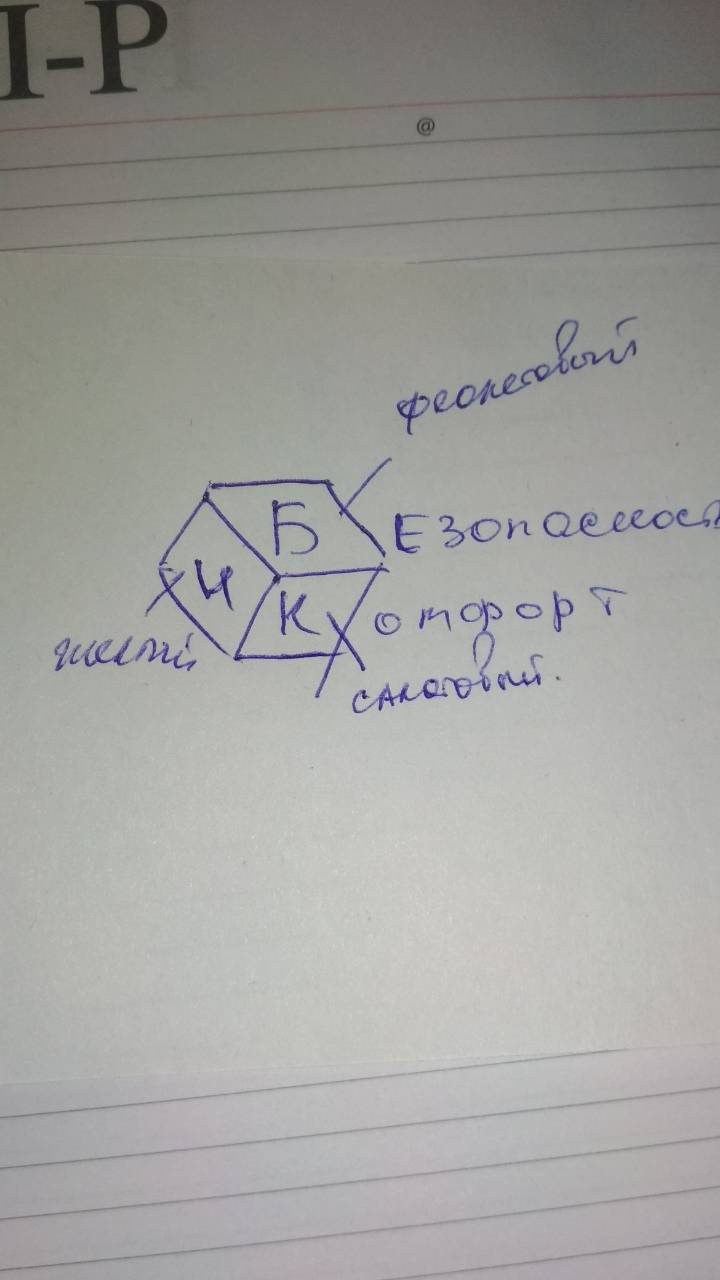 І-Р
@
фиолетовый
Б ЕЗОПАСНОСТЬ
И
К ОМФОРТ
желтый
САЛАТОВЫЙ.